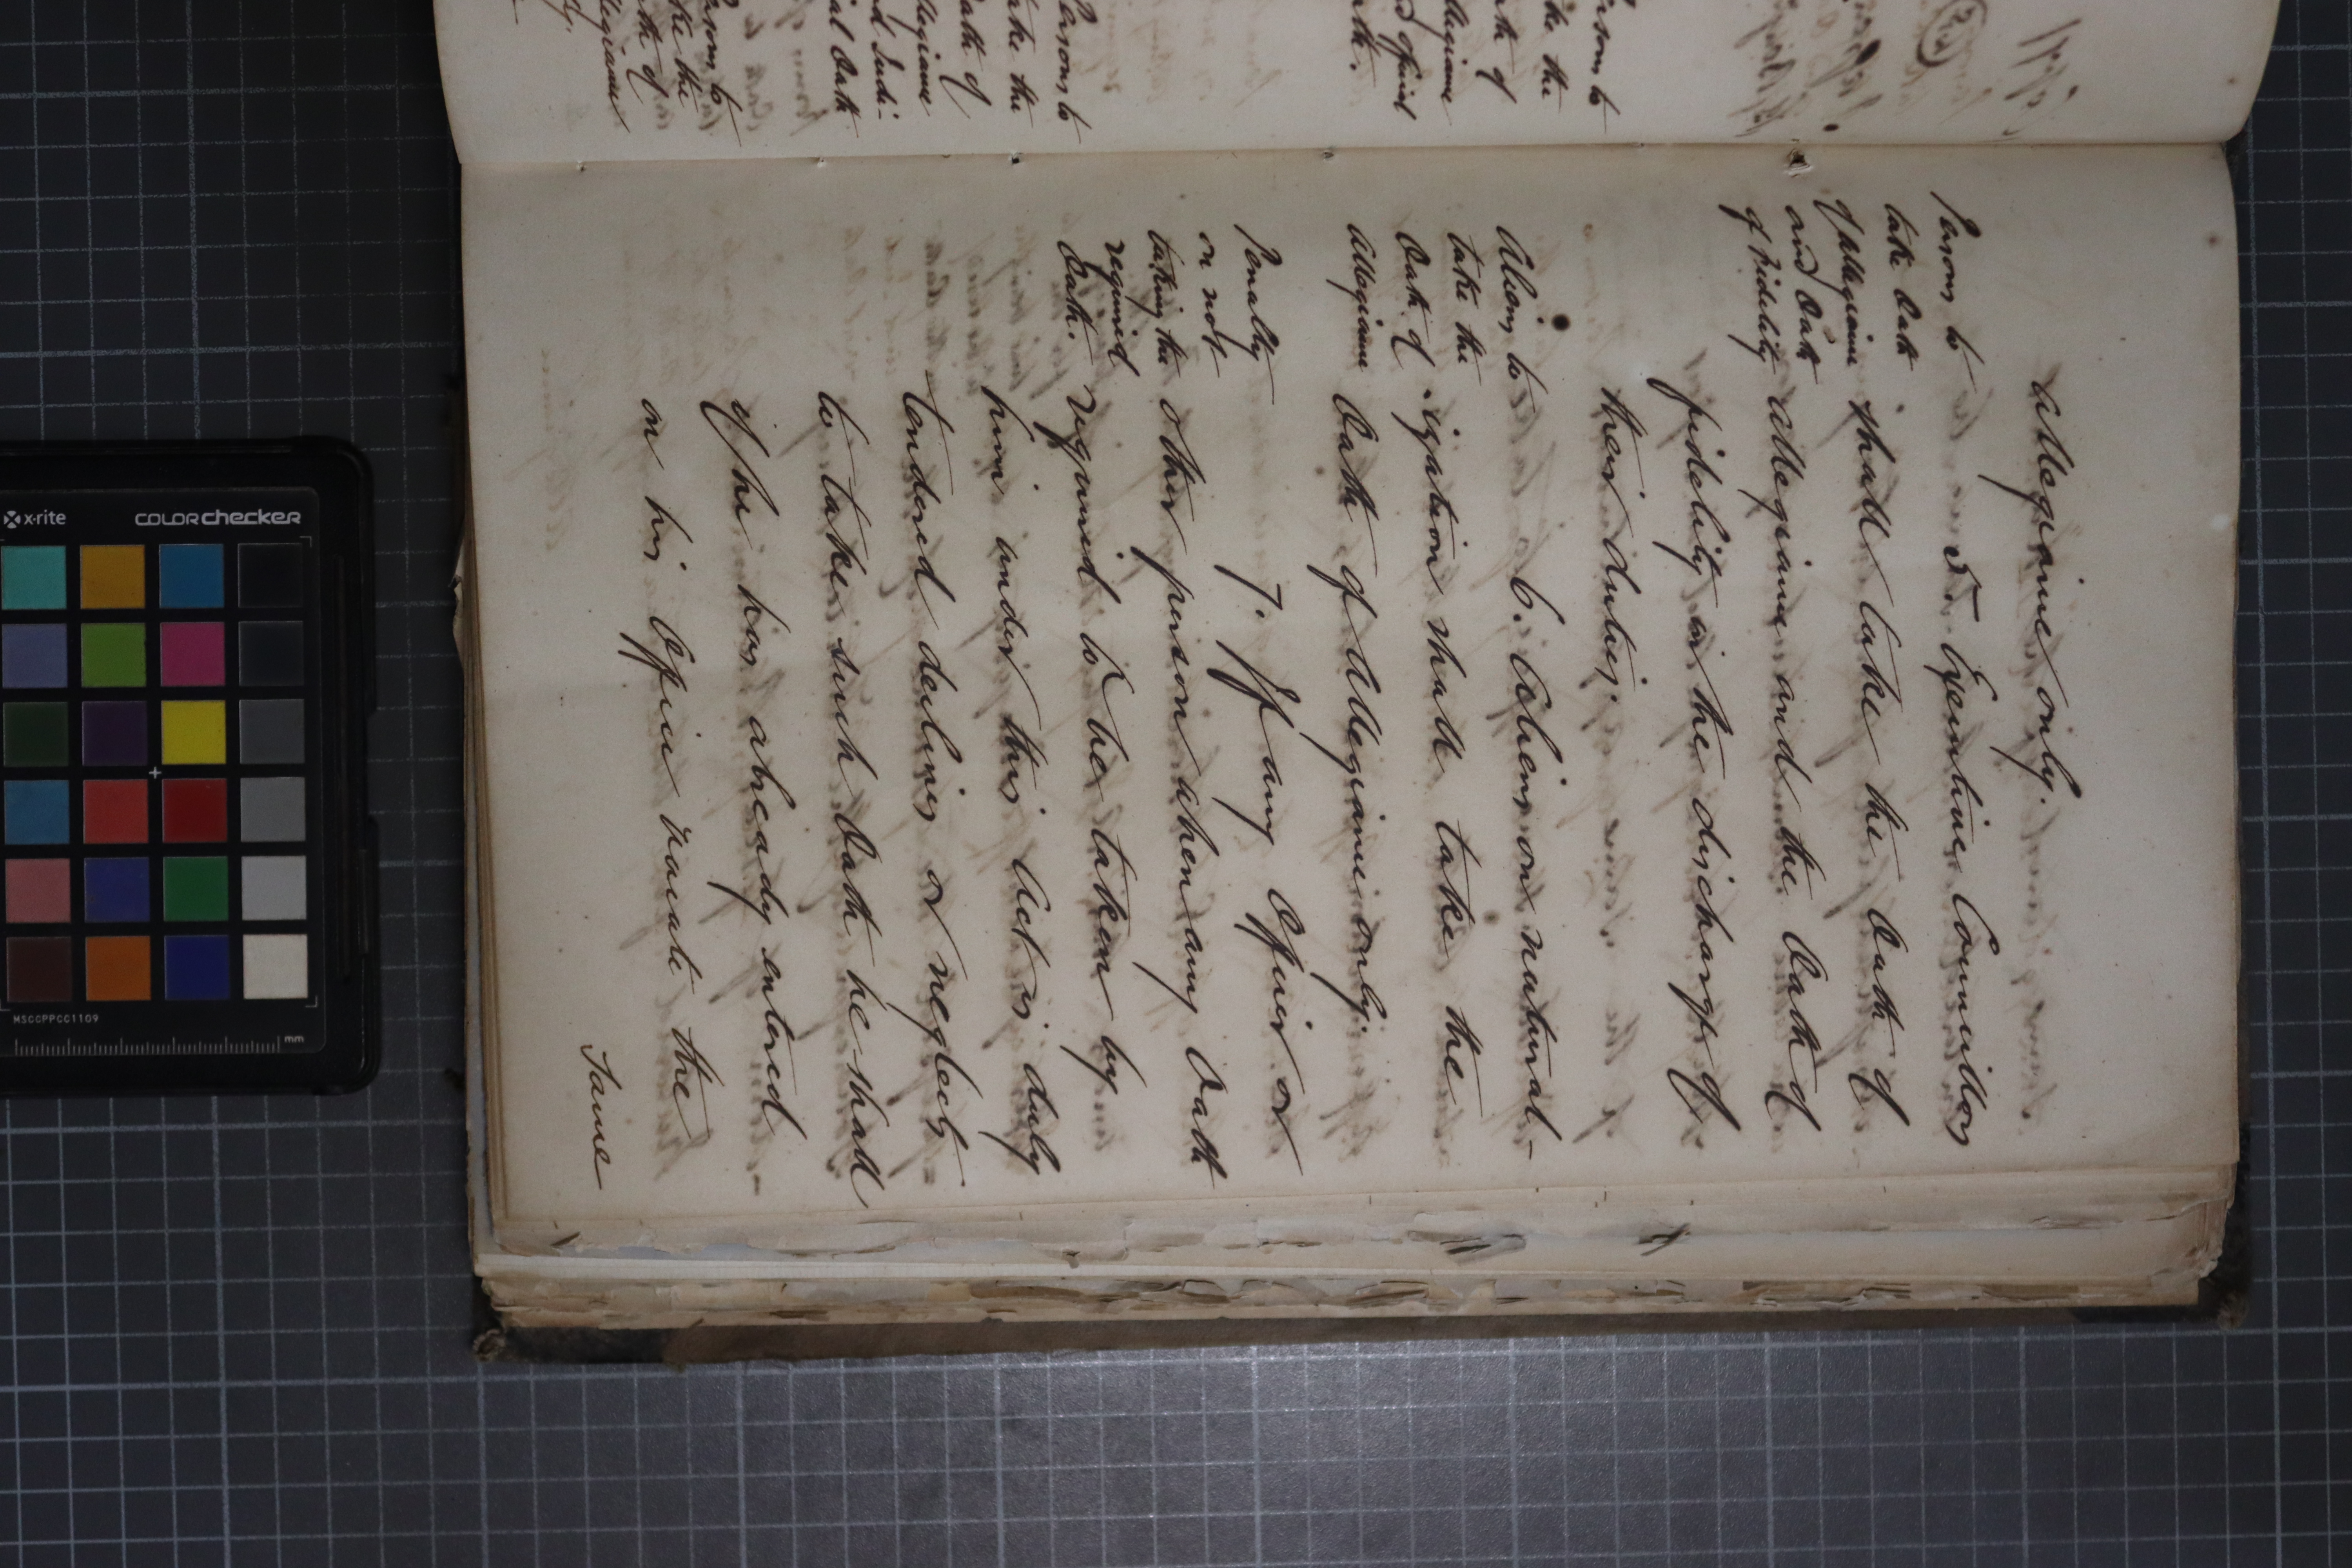 allegiance only.
Persons to
take Oath
of Allegiance
and Oath
of Fidelity
5. Executive Councillors
shall take the Oath of
allegiance and the Oath of
fidelity in the discharge of
their duties.
Aliens to
take the
Oath of
Allegiance
6. Aliens on natural-
ization shall take the
Oath of Allegiance only.
Penalty
on not
taking the
required
Oath.
7. If any Officer or
other person when any Oath
required to be taken by
him under this Act is duly
tendered declines or neglects
to take such Oath he shall
if he has already entered
on his Office vacate the
Same
Persons to
take the
Oath of
Allegiance
and Judi-
cial Oath
x-rite
colorchecker
MSCCPPCC1109
mm